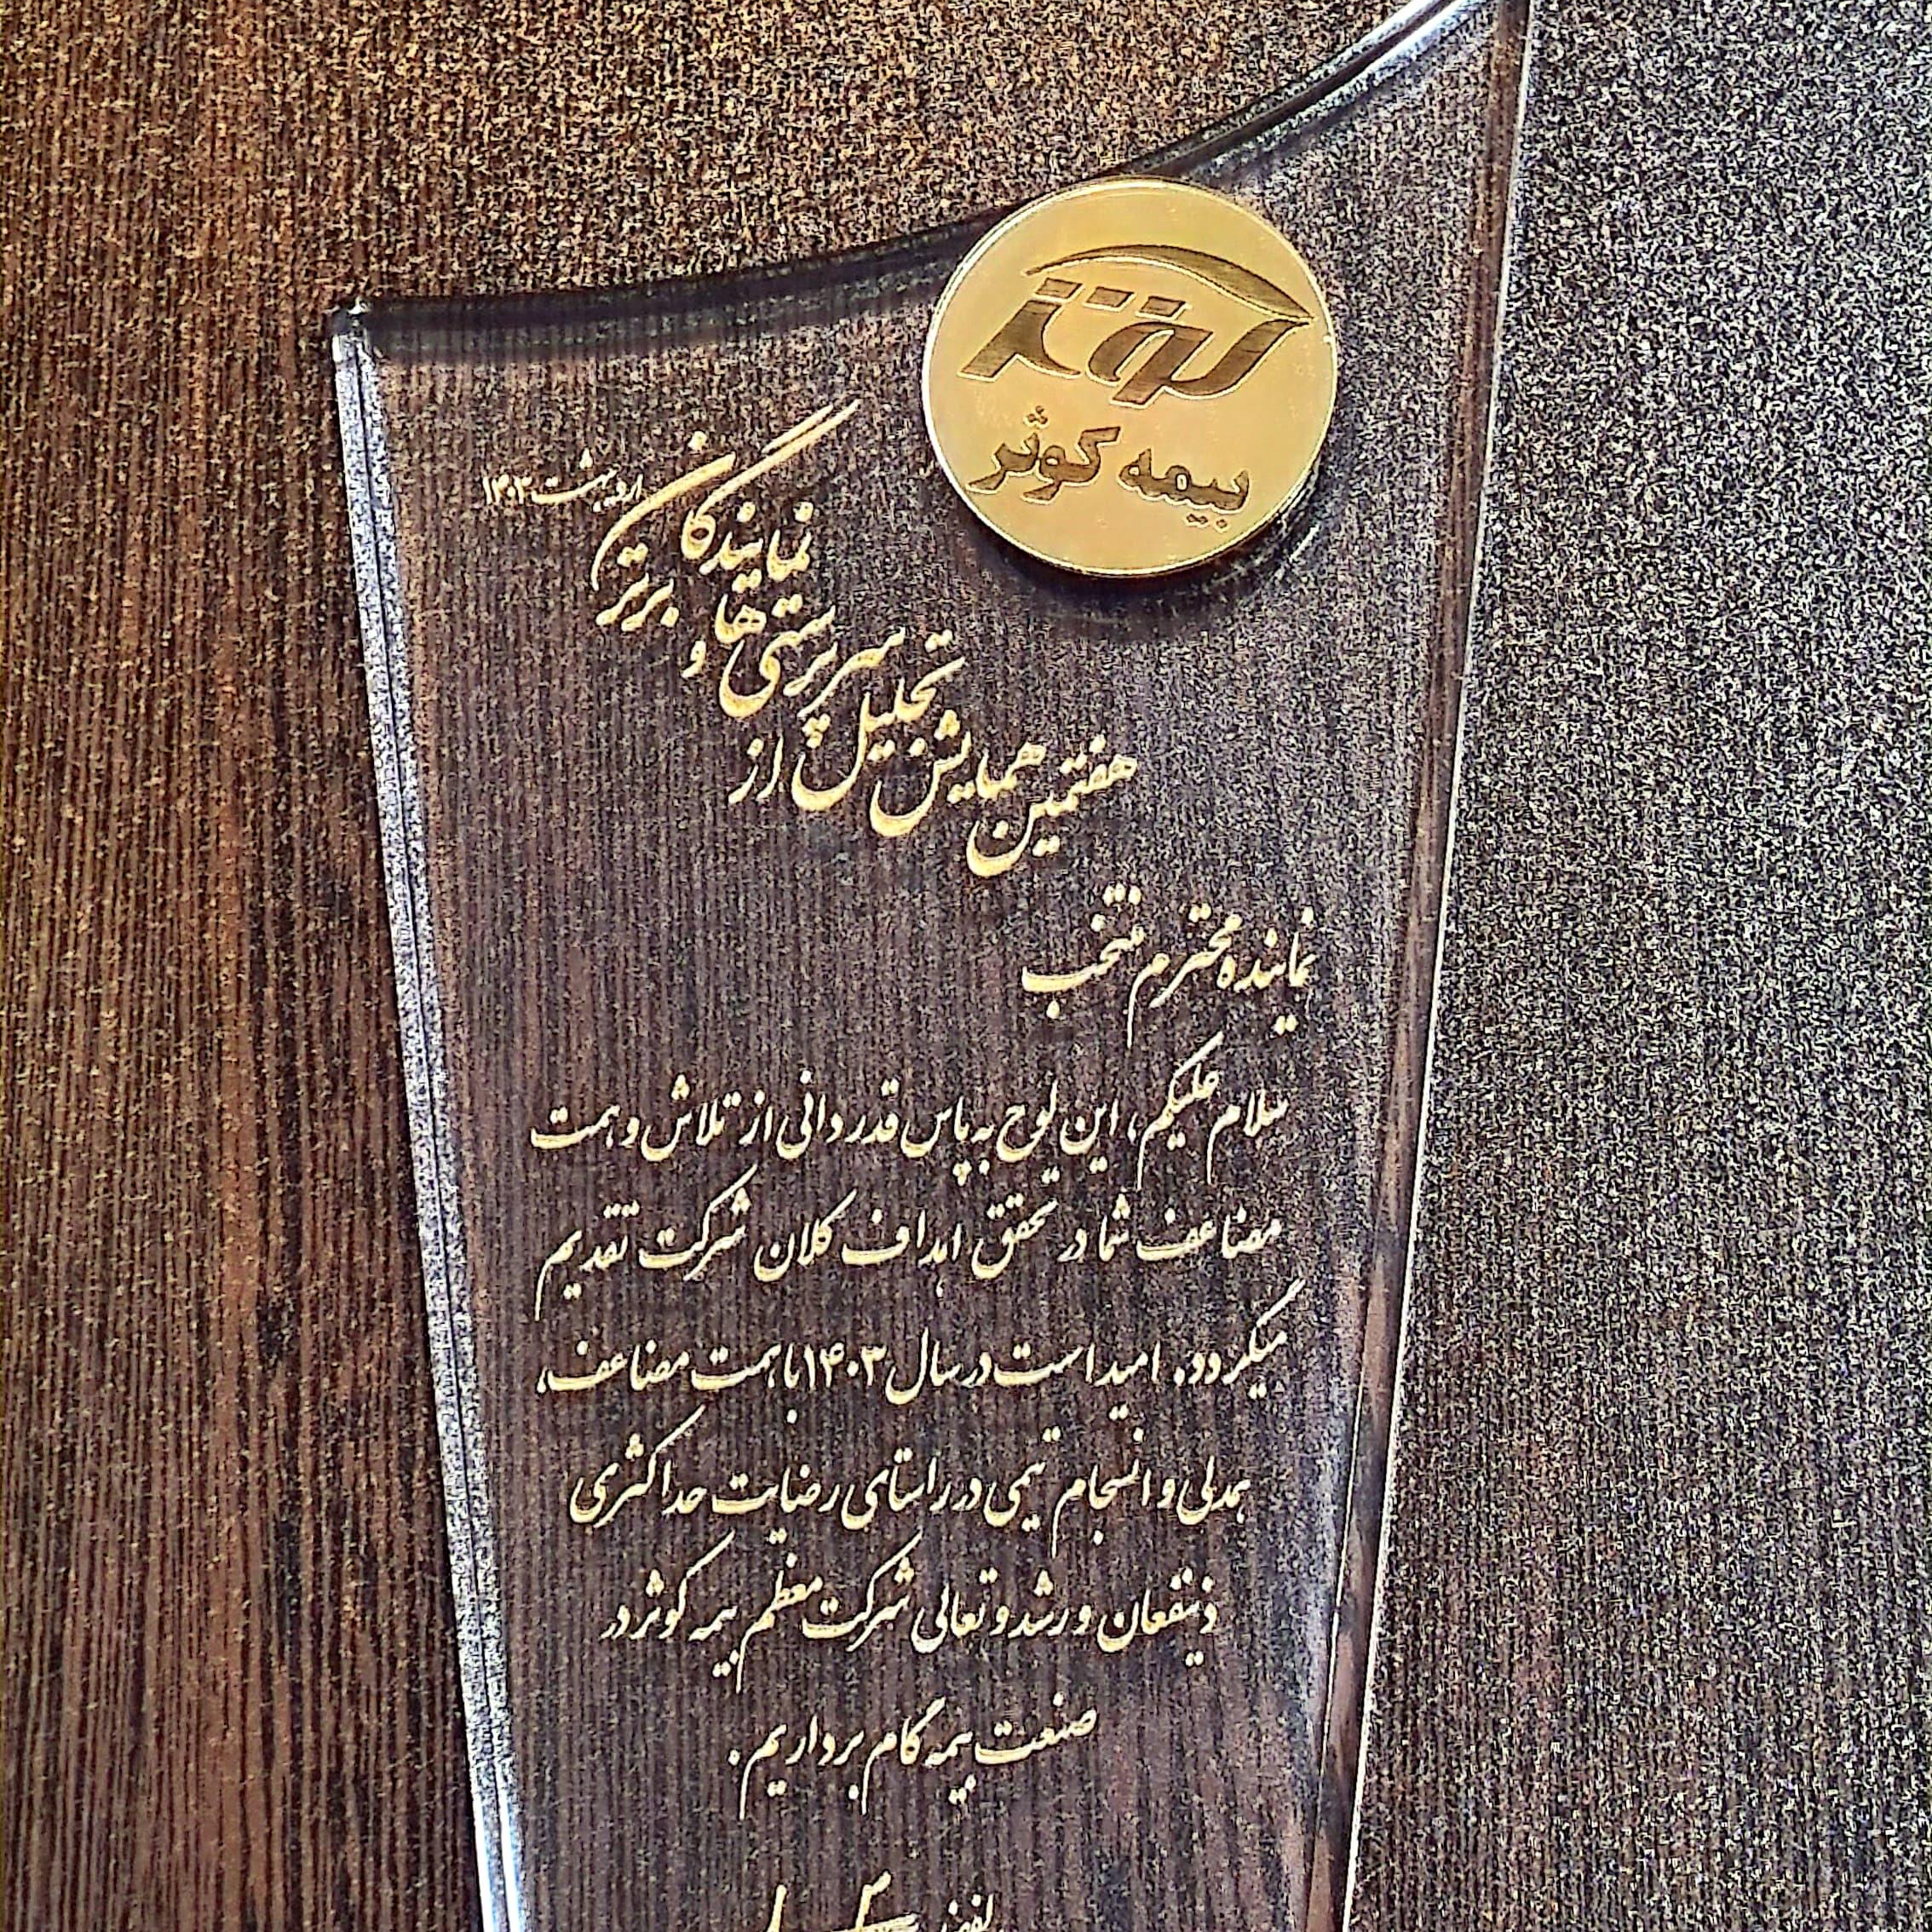 کوثر
بیمه کوثر
هفتمین همایش تجلیل از
سرپرستی ها و
نمایندگان برتر
اردیبهشت ۱۴۰۳
نماینده محترم منتخب
سلام علیکم، این لوح به پاس قدردانی از تلاش و همت
مضاعف شما در تحقق اهداف کلان شرکت تقدیم
میگردد. امید است در سال ۱۴۰۳ با همت مضاعف،
همدلی و انسجام تیمی در راستای رضایت حداکثری
ذینفعان و رشد و تعالی شرکت معظم بیمه کوثر در
صنعت بیمه گام برداریم.